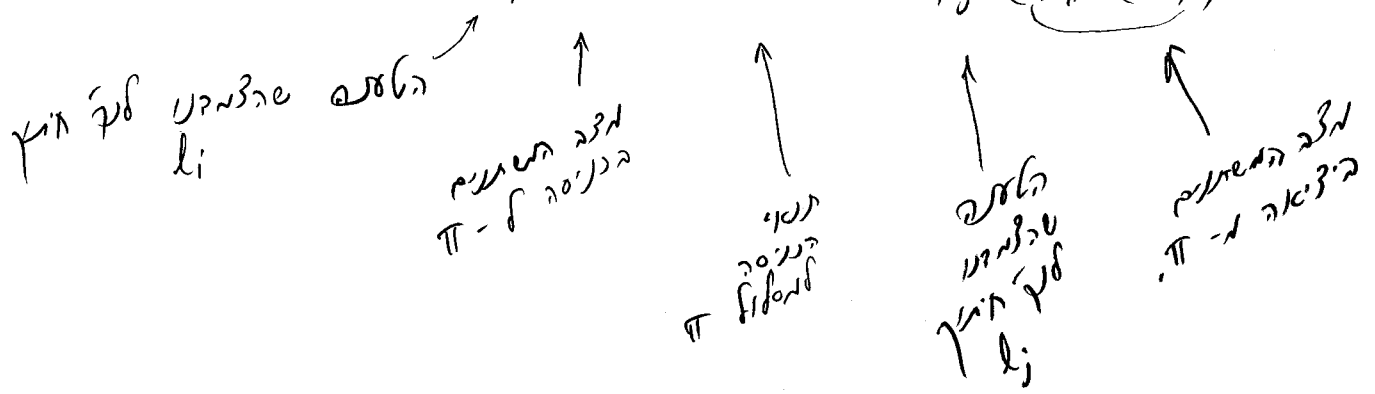 הטענה שהצמדנו לנק' חיתוך
li
מצב המשתנים
בכניסה ל- π
תנאי
הכניסה
למסלול π
הטענה
שהצמדנו
לנק' חיתוך
lj
מצב המשתנים
ביציאה מ- π.